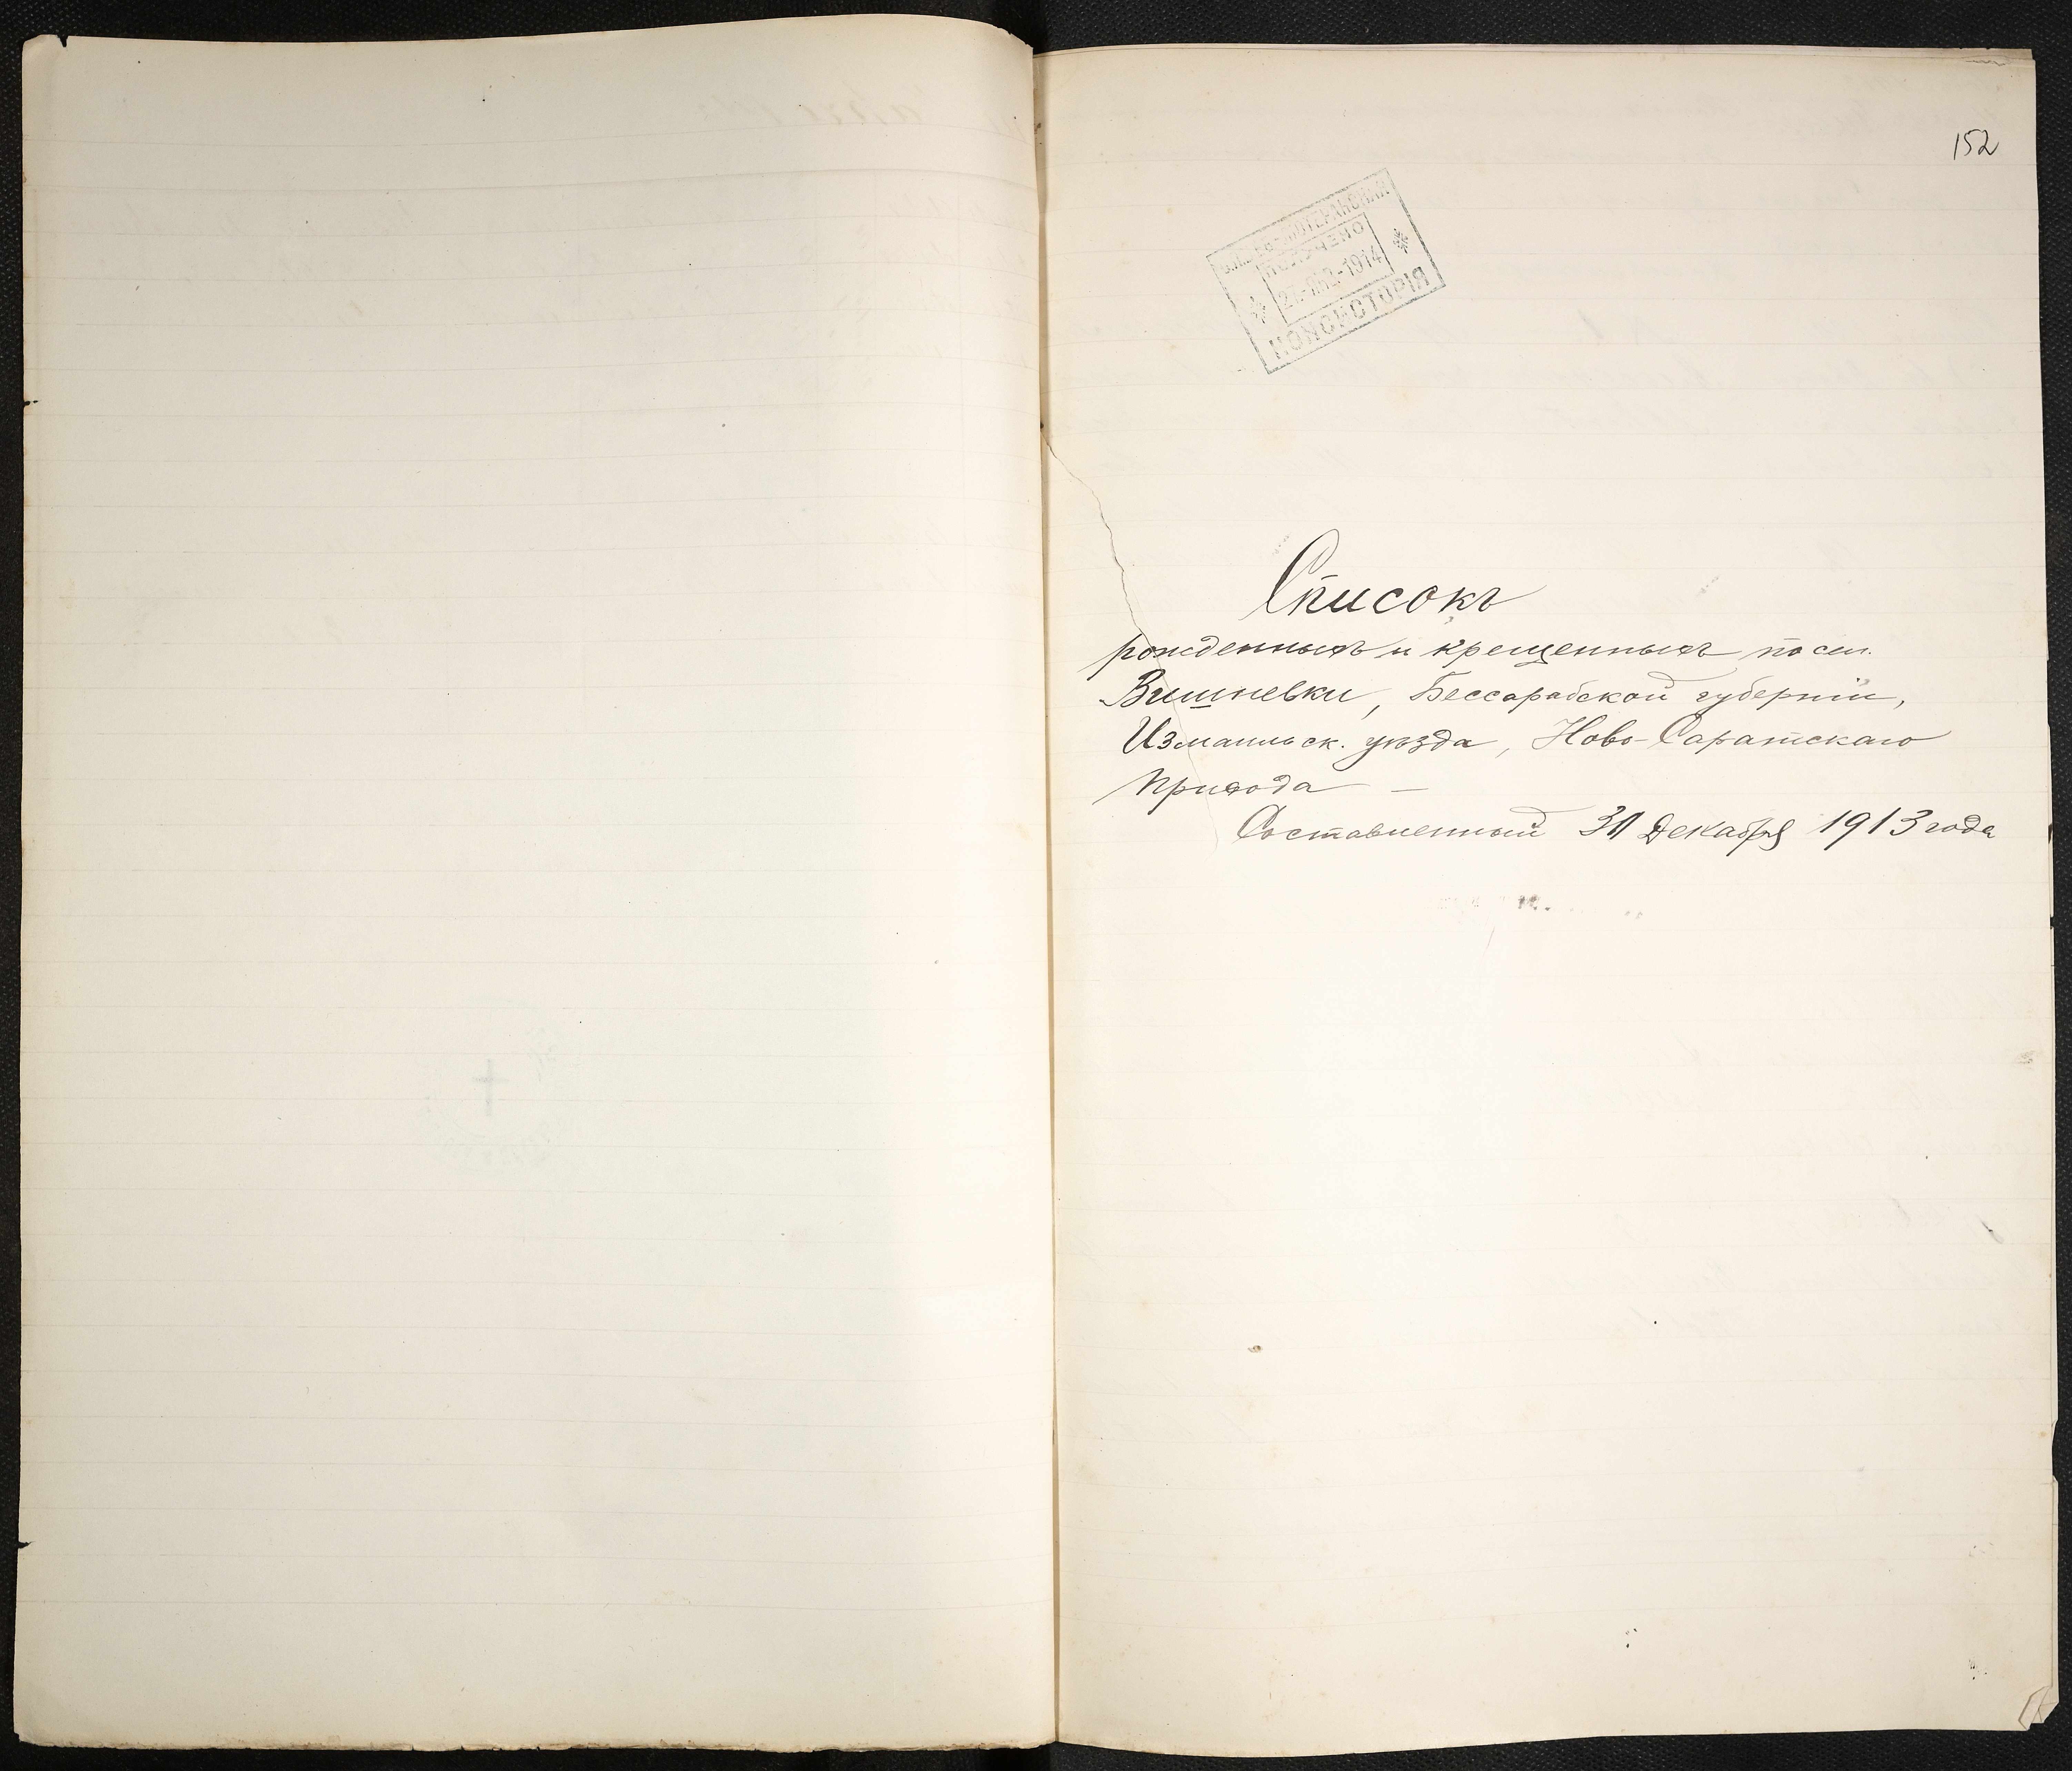 152
ЛЮТЕРАНСКАЯ
ПОЛУЧЕНО
-ЯНВ-1914
КОНСИСТОРІЯ
Списокъ
рожденныхъ и крещенныхъ по сел.
Вишневки, Бессарабской губерніи,
Измаильск. уѣзда, Ново-Саратскаго
прихода —
Составленный 31 Декабря 1913 года